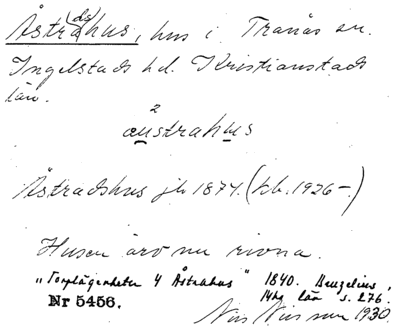 Åstra(ds)hus, hus i Tranås sn.
Ingelstads hd. Kristianstads
län.
2
austrahus
Åstradshus jb 1874. (kb. 1926–.)
Husen äro nu rivna.
"Torplägenheten 4 Åstrahus" 1840. Beuzelius,
Nr 5456. län s. 276.
Nils 1930.